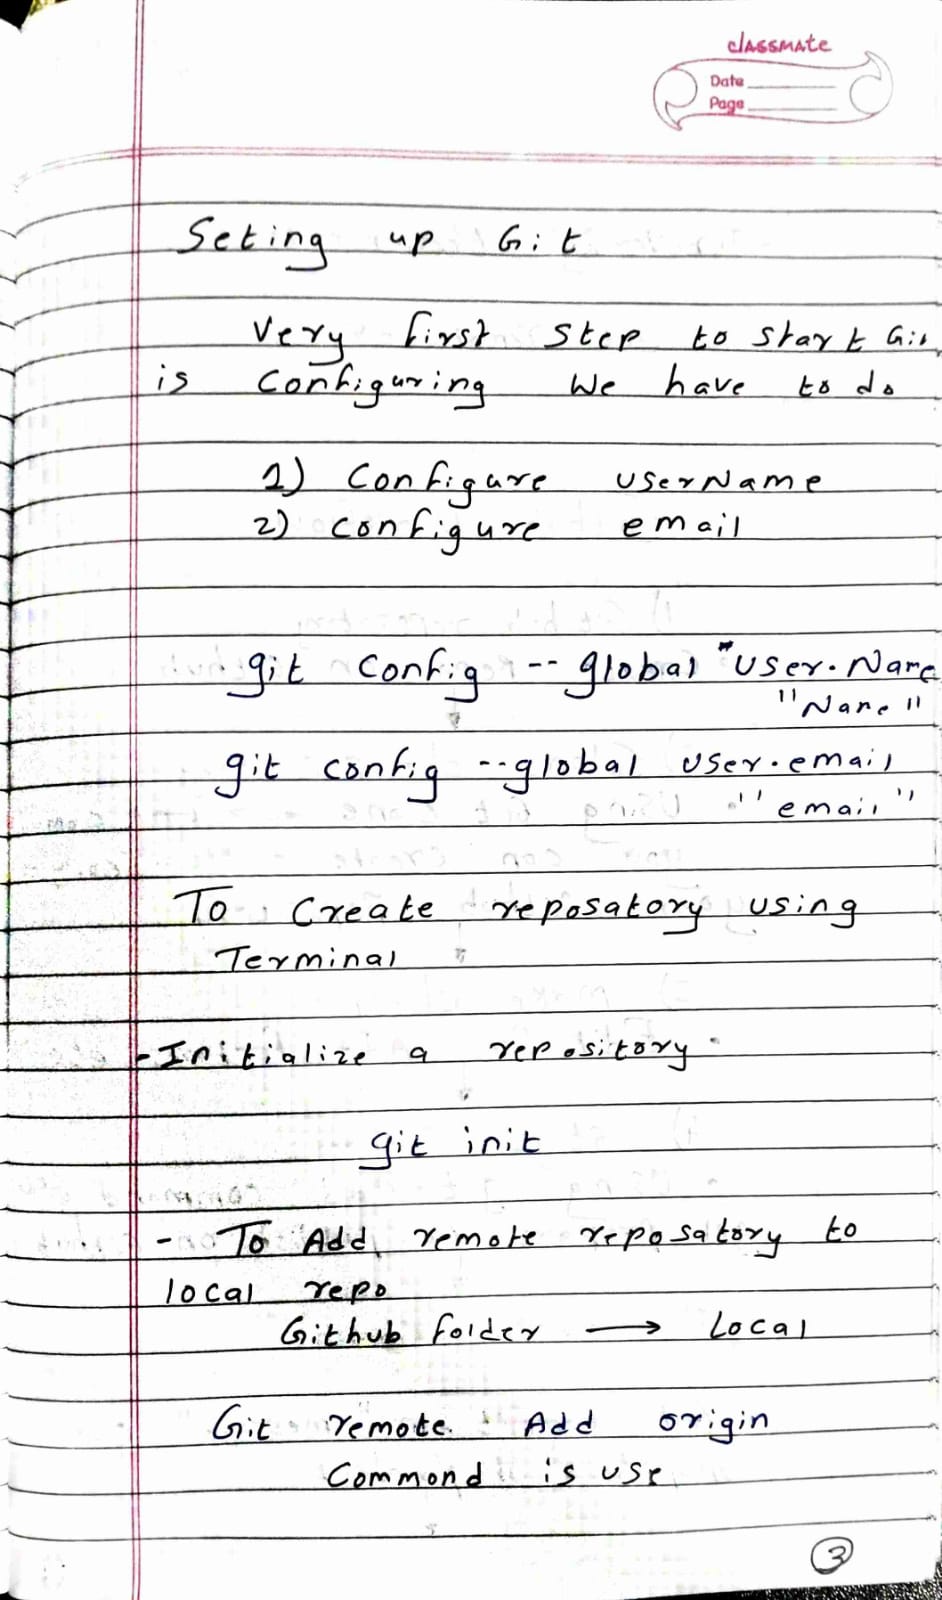 classmate
Date
Page
Seting up Git
Very first step to start Git
is Configuring We have to do
1) Configure userName
2) configure email
git config -- global "user.Name
"Name"
git config --global user.email
"email"
To Create reposatory using
Terminal
- Initialize a repository
git init
- To Add remote reposatory to
local repo
Github folder → Local
Git remote Add origin
Commond is use
3